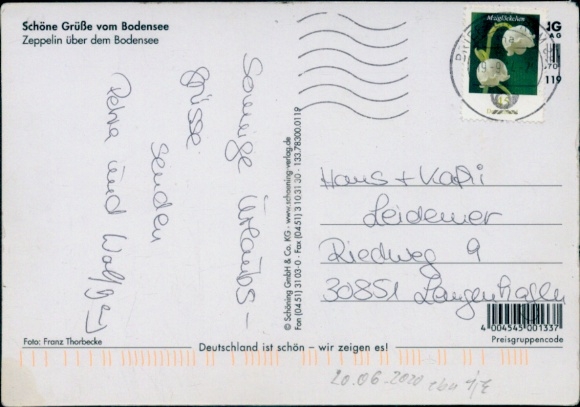 Schöne Grüße vom Bodensee
Zeppelin über dem Bodensee
Sonnige Urlaubs-
grüsse
senden
Petra und Wolfgang
Foto: Franz Thorbecke
© Schöning GmbH & Co. KG · www.schoening-verlag.de
Fon (04 51) 3 10 3-0 · Fax (04 51) 3 10 31 30 · 133.78300.0119
Maiglöckchen
45
NG
AG
.70
119
Hans + Kathi
Leidemer
Riedweg 9
30851 Langenhagen
4 004545 001337
Preisgruppencode
Deutschland ist schön – wir zeigen es!
20.06.2020